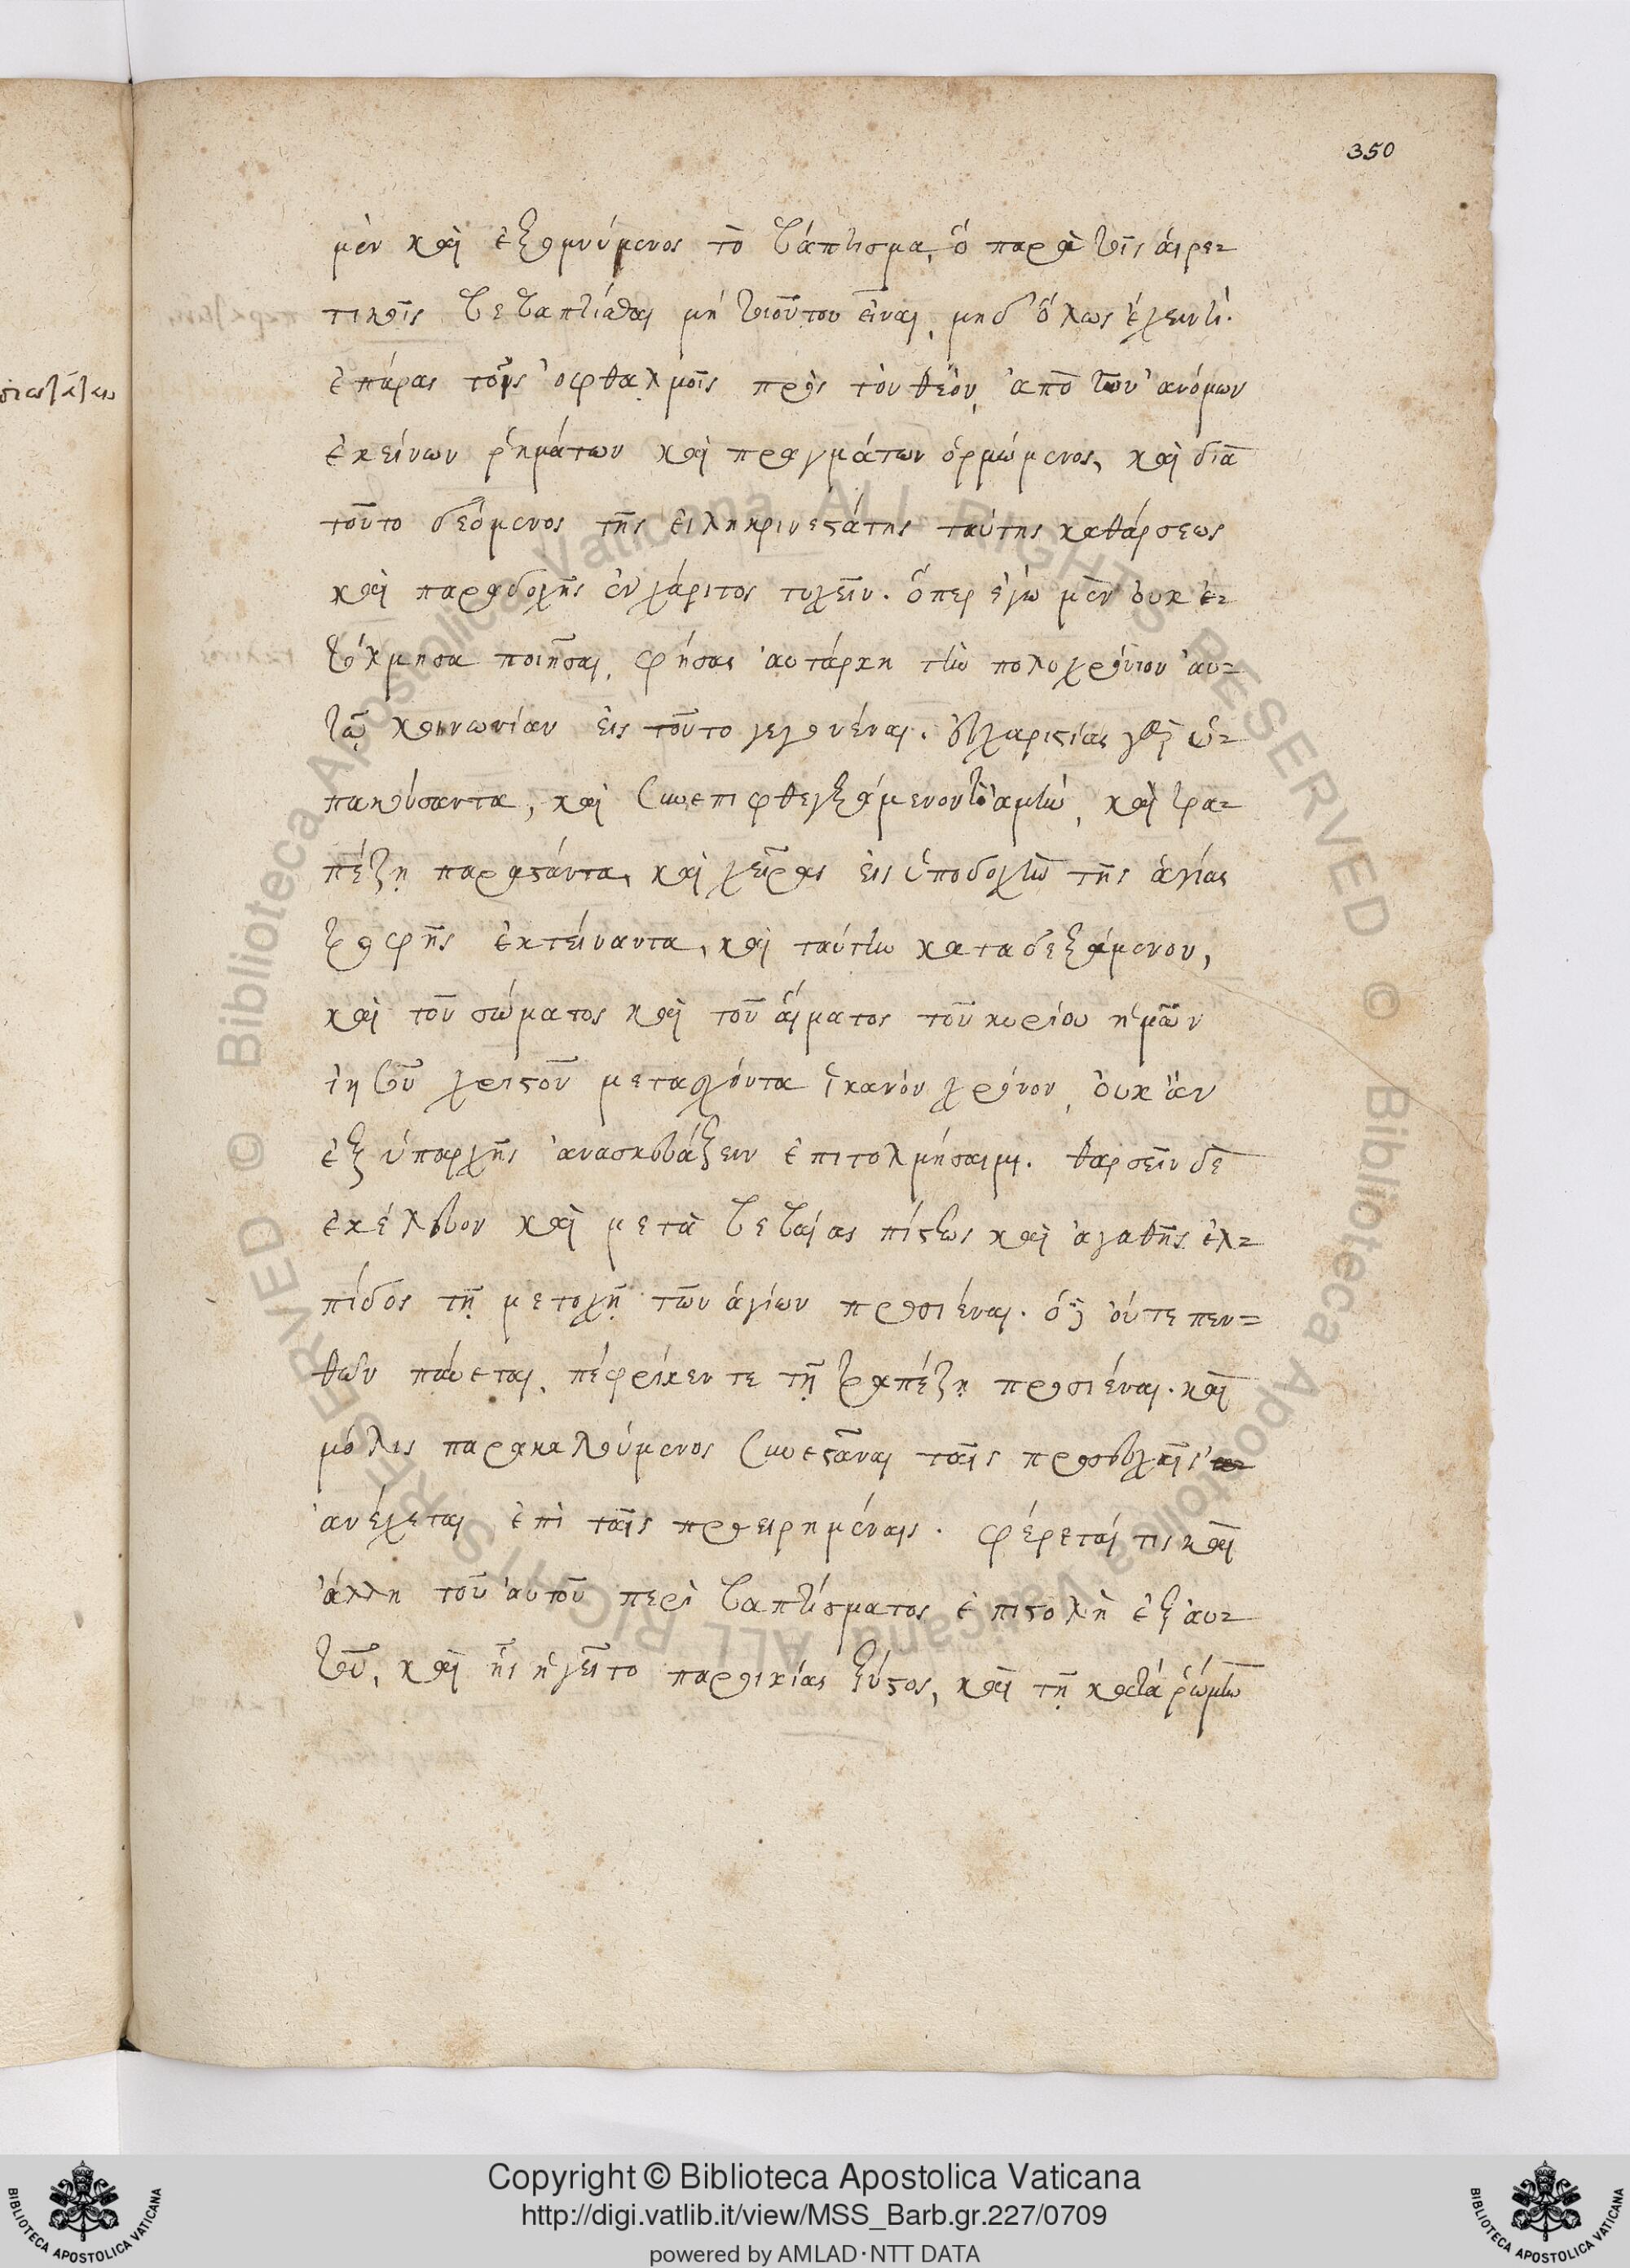 350
μὲν καὶ ἐξομνύμενος τὸ βάπτισμα, ὃ παρὰ τοῖς αἱρε-
τικοῖς βεβαπτίσθαι μὴ τοιοῦτον εἶναι, μηδ' ὅλως ἔχειν τί.
ἐπάρας τοὺς ὀφθαλμοῖς πρὸς τὸν θεὸν, ἀπὸ τῶν ἀνόμων
ἐκείνων ῥημάτων καὶ πραγμάτων ὁρμώμενος, καὶ διὰ
τοῦτο δεόμενος τῆς εἰληκρινεστάτης ταύτης καθάρσεως
καὶ παραδοχῆς ἐν χάριτος τυχεῖν. ὅπερ ἐγὼ μὲν οὐκ ἐ-
τόλμησα ποιῆσαι, φήσας αὐτάρκη τὴν πολυχρόνιον αὐ-
τῷ κοινωνίαν εἰς τοῦτο γεγονέναι. εὐχαριστίας γὰρ ὑ-
πακούσαντα, καὶ συνεπιφθεγξάμενον τὸ ἀμὴν, καὶ τρα-
πέζῃ παραστάντα, καὶ χεῖρας εἰς ὑποδοχὴν τῆς ἁγίας
τροφῆς ἐκτείναντα, καὶ ταύτην καταδεξάμενον,
καὶ τοῦ σώματος καὶ τοῦ αἵματος τοῦ κυρίου ἡμῶν
ἰησοῦ χριστοῦ μετασχόντα ἱκανὸν χρόνον, οὐκ ἂν
ἐξ ὑπαρχῆς ἀνασκευάζειν ἐπιτολμήσαιμι. θαρσεῖν δὲ
ἐκέλευον καὶ μετὰ βεβαίας πίστεως καὶ ἀγαθῆς ἐλ-
πίδος τῇ μετοχῇ τῶν ἁγίων προσιέναι. ὁ δὲ οὔτε πεν-
θῶν παύεται, πέφρικεν τε τῇ τραπέζῃ προσιέναι. καὶ
μόλις παρακαλούμενος συνεστάναι ταῖς προσευχαῖς
ἀνέχεται ἐπὶ ταῖς προειρημέναις. φέρεταί τις καὶ
ἄλλη τοῦ αὐτοῦ περὶ βαπτίσματος ἐπιστολὴ ἐξ αὐ-
τοῦ, καὶ ἧς ἡγεῖτο παροικίας ξύστος, καὶ τῇ κατὰ ῥώμην
Copyright © Biblioteca Apostolica Vaticana
http://digi.vatlib.it/view/MSS_Barb.gr.227/0709
powered by AMLAD·NTT DATA
BIBLIOTECA APOSTOLICA VATICANA
BIBLIOTECA APOSTOLICA VATICANA
© Biblioteca Apostolica Vaticana ALL RIGHTS RESERVED
© Biblioteca Apostolica Vaticana ALL RIGHTS RESERVED